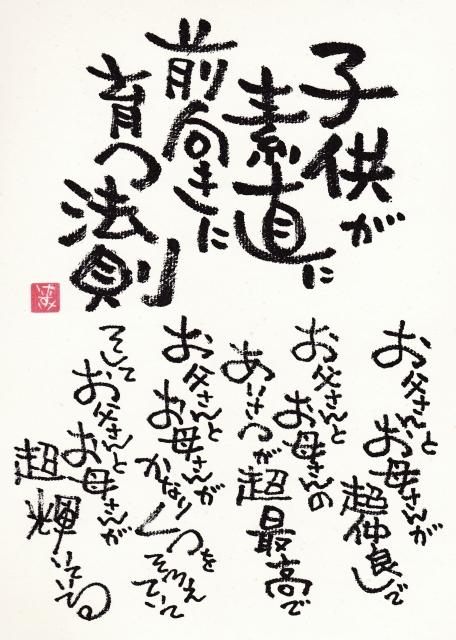 子供が
素直に
前向きに
育つ法則
お父さんとお母さんが
超仲良しで
お父さんとお母さんの
あいさつが超最高で
お父さんとお母さんが
かなりくつをそろえていて
そしてお父さんとお母さんが
超輝いている